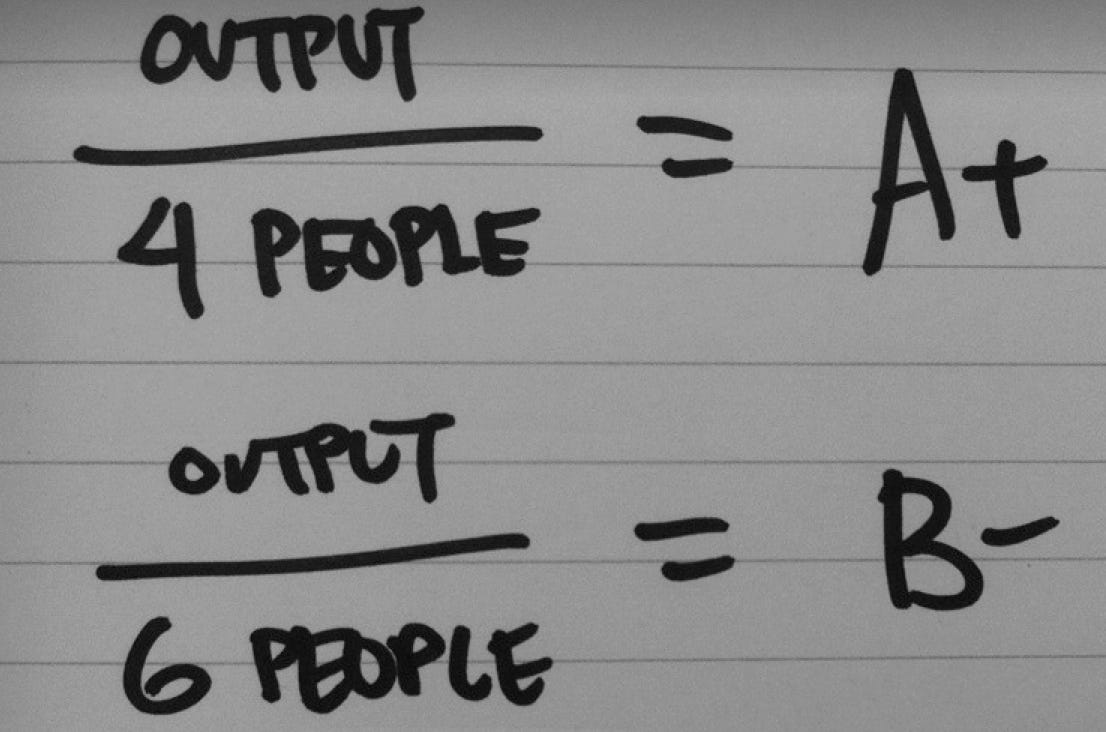 OUTPUT
4 PEOPLE
= A+
OUTPUT
6 PEOPLE
= B-